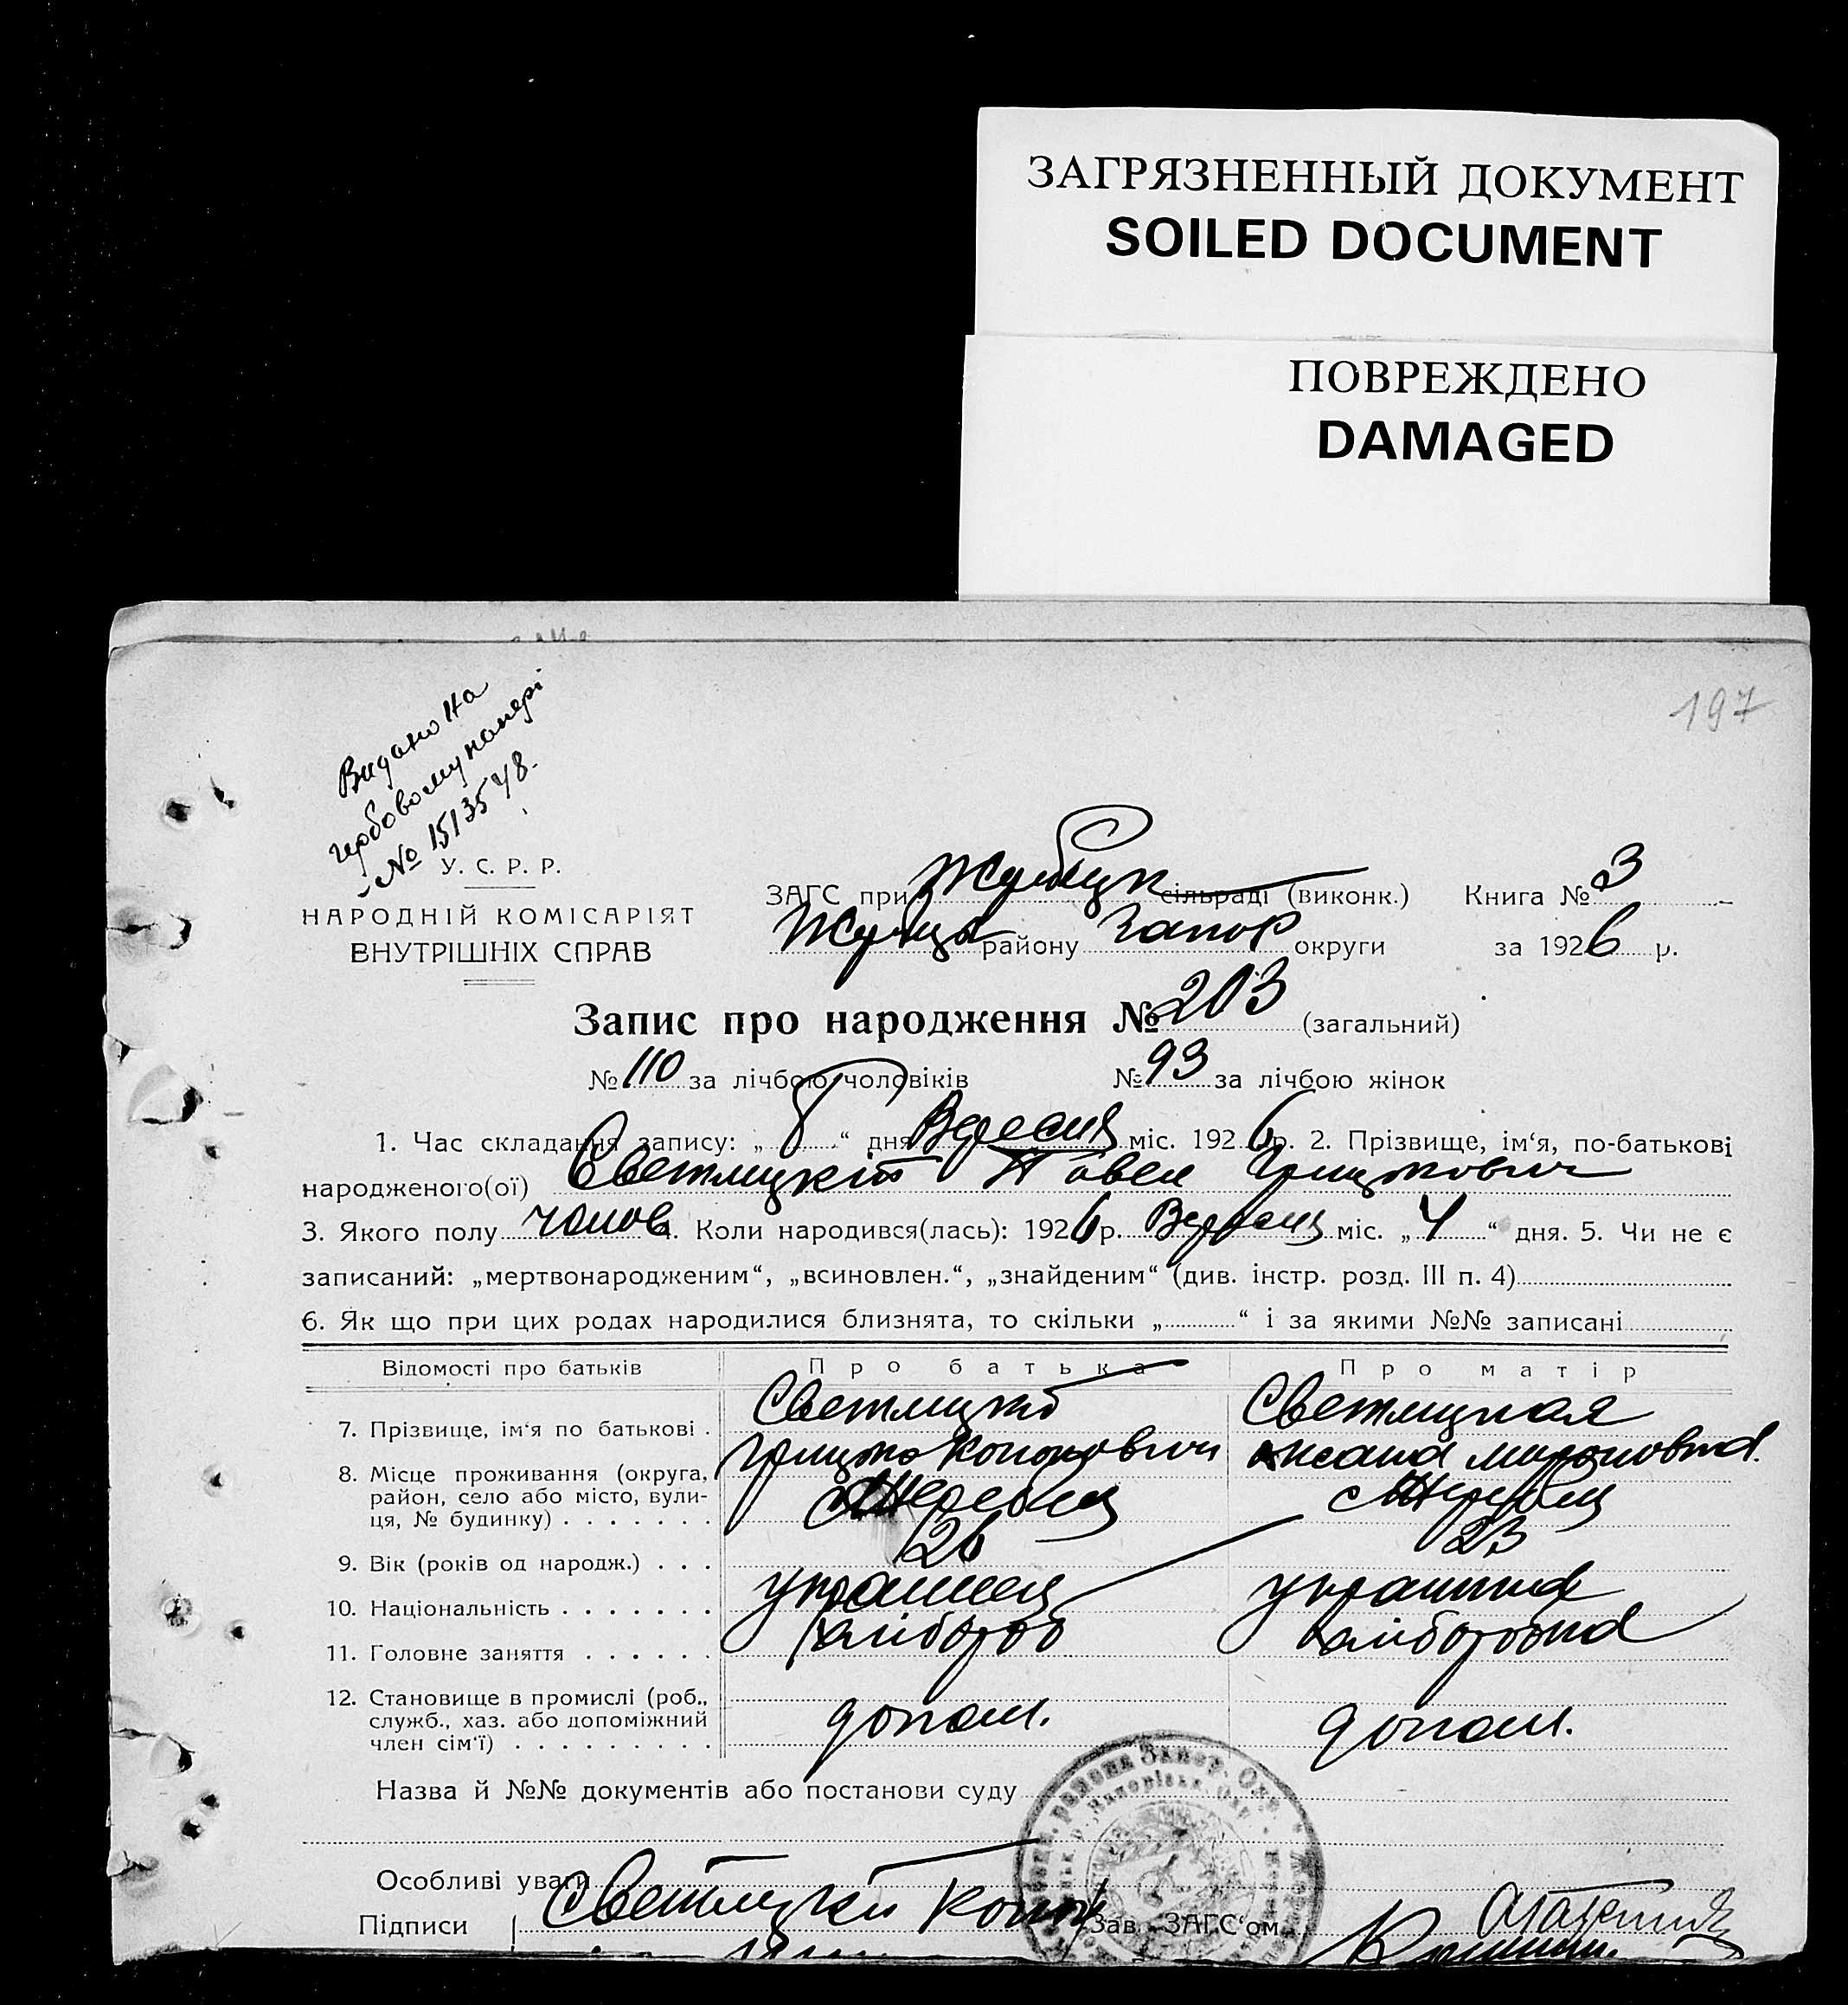 ЗАГРЯЗНЕННЫЙ ДОКУМЕНТ
SOILED DOCUMENT
ПОВРЕЖДЕНО
DAMAGED
197
Видано на
гербовому папері
№ 1513548.
У. С. Р. Р.
НАРОДНІЙ КОМІСАРІЯТ
ВНУТРІШНІХ СПРАВ
ЗАГС при сільраді (виконк.) Книга № 3
району Запор округи за 1926 р.
Запис про народження № 203 (загальний)
№ 110 за лічбою чоловіків № 93 за лічбою жінок
1. Час складання запису: „ 8 “ дня Вересня міс. 1926 р. 2. Прізвище, ім‘я, по-батькові
народженого(ої) Светлицкий Павел Грицкович
3. Якого полу чолов 4. Коли народився(лась): 1926 р. Вересня міс. „ 4 “ дня. 5. Чи не є
записаний: „мертвонародженим“, „всиновлен.“, „знайденим“ (див. інстр. розд. III п. 4)
6. Як що при цих родах народилися близнята, то скільки „ “ і за якими №№ записані
Відомості про батьків Про батька Про матір
7. Прізвище, ім‘я по батькові . Светлицкий Грицко Кононович Светлицкая Оксана Мироновна.
8. Місце проживання (округа, район, село або місто, вули-
ця, № будинку) . . . . . . . с Жеребец с Жеребец
9. Вік (років од народж.) . . . 26 23
10. Національність . . . . . . . украинец украинка
11. Головне заняття . . . . . . хлібороб хлібороб
12. Становище в промислі (роб.,
служб., хаз. або допоміжний
член сім‘ї) . . . . . . . . . допом. допом.
Назва й №№ документів або постанови суду
Особливі уваги
Підписи Светлицкий Зав. ЗАГС‘ом